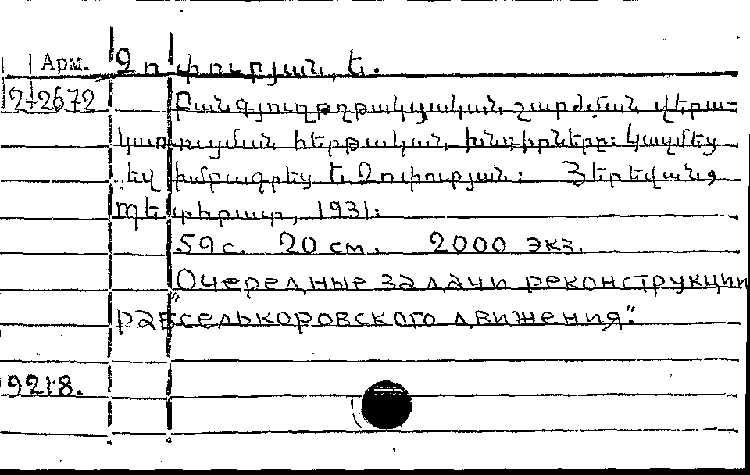 Арм. Չուփուրյան, Ե.
2-2672 Բանգյուղթղթակցական շարժման վերա-
կառուցման հերթական խնդիրները: Կազմեց
եվ խմբագրեց Ե. Չուփուրյան: Յերեվան,
Պետհրատ, 1931.
59 с. 20 см. 2000 экз.
"Очередные задачи реконструкции
рабселькоровского движения".
9218.